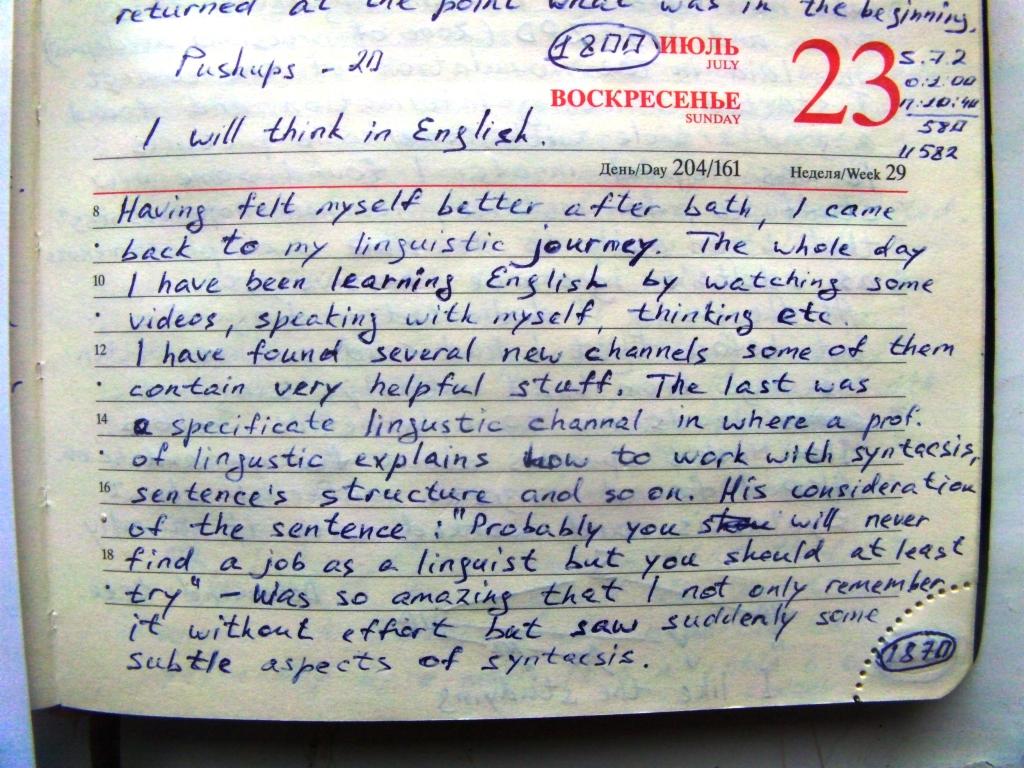 returned at the point what was in the beginning.
Pushups - 20
1800
ИЮЛЬ
JULY
ВОСКРЕСЕНЬЕ
SUNDAY
23
5.7.2
0:2.00
П:10:40
580
11582
I will think in English.
День/Day 204/161 Неделя/Week 29
8 Having felt myself better after bath, I came
back to my linguistic journey. The whole day
10 I have been learning English by watching some
videos, speaking with myself, thinking etc.
12 I have found several new channels some of them
contain very helpful stuff. The last was
14 a specificate lingustic channal in where a prof.
of lingustic explains how to work with syntacsis,
16 sentence's structure and so on. His consideration
of the sentence: "Probably you will never
18 find a job as a linguist but you should at least
try" - was so amazing that I not only remember
it without effort but saw suddenly some
subtle aspects of syntacsis.
1870